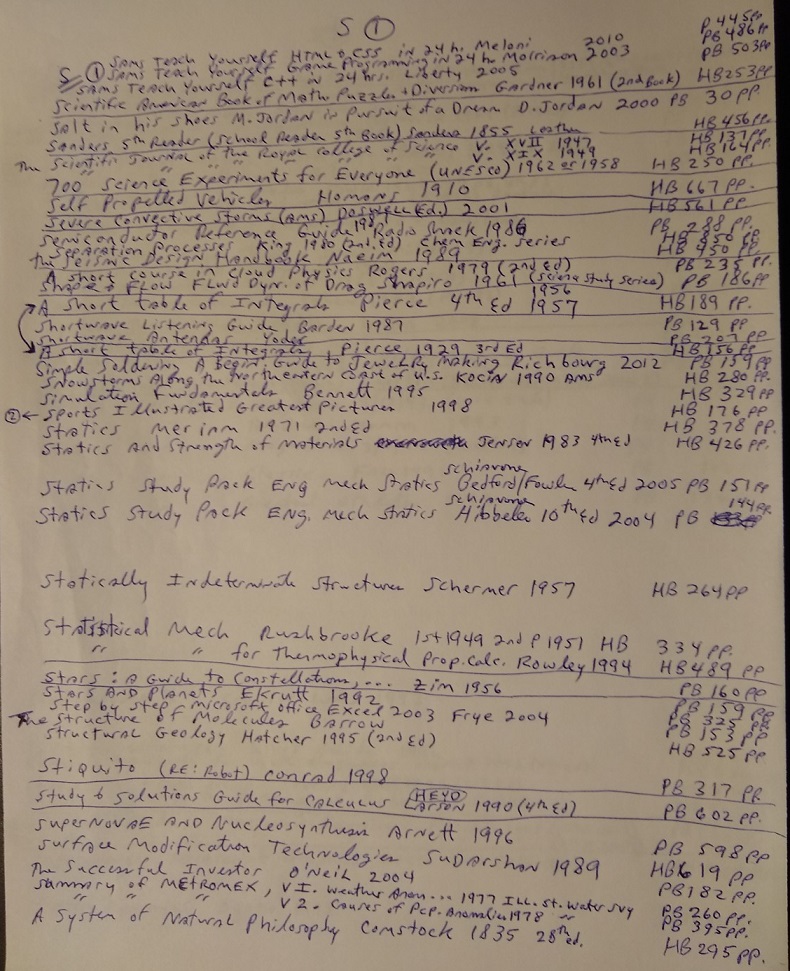 S ①
SAMS Teach Yourself HTML & CSS in 24 h. Meloni 2010 P 445pp
S ① SAMS Teach Yourself Game Programming in 24 h. Morrison 2003 PB 486pp
SAMS Teach Yourself C++ in 24 hrs. Liberty 2005 PB 503pp
Scientific American Book of Math. Puzzles + Diversions Gardner 1961 (2nd Book) HB 253pp
Salt in his shoes M. Jordan in Pursuit of a Dream D. Jordan 2000 PB 30 pp.
Sanders 5th Reader (School Reader 5th Book) Sanders 1855 Leather HB 456pp
The Scientific Journal of the Royal College of Science V. XVII 1947 HB 137pp
" " " " " " V. XIX 1949 HB 164pp
700 Science Experiments for Everyone (UNESCO) 1962 or 1958 HB 250 pp.
Self Propelled Vehicles Homans 1910 HB 667 pp.
Severe Convective Storms (AMS) Doswell (Ed.) 2001 HB 561 pp
Semiconductor Reference Guide Radio Shack 1986 PB 288 pp.
Separation Processes King 1980 (2nd. Ed) Chem Eng. Series HB 850 pp
The Seismic Design Handbook Naeim 1989 HB 450 pp.
A Short course in Cloud Physics Rogers 1979 (2nd Ed) PB 235 pp.
Shape & Flow Fluid Dyn. of Drag Shapiro 1961 (Science Study Series) PB 186pp
A short table of Integrals Pierce 4th Ed 1957 1956 HB 189 pp.
Shortwave Listening Guide Barden 1987 PB 129 pp
Shortwave Antennas Yoder PB 207 pp
A Short table of Integrals Pierce 1929 3rd Ed HB 156 pp
Simple Soldering A Begin. Guide to Jewelry Making Richbourg 2012 PB 159pp
Snowstorms Along the Northeastern Coast of U.S. Kocin 1990 AMS HB 280 pp.
Simulation Fundamentals Bennett 1995 HB 329pp
② ← Sports Illustrated Greatest Pictures 1998 HB 176 pp
Statics Meriam 1971 2nd Ed HB 378 pp.
Statics And Strength of Materials Jensen 1983 4th Ed HB 426 pp.
Schiavone
Statics Study Pack Eng Mech Statics Bedford/Fowler 4th Ed 2005 PB 151pp
Schiavone
Statics Study Pack Eng. Mech Statics Hibbeler 10th Ed 2004 PB 144pp.
Statically Indeterminate Structures Schermer 1957 HB 264pp
Statistical Mech Rushbrooke 1st 1949 2nd P 1951 HB 334 pp.
" " for Thermophysical Prop. Calc. Rowley 1994 HB 489 pp
Stars: A Guide to Constellations, ... Zim 1956 PB 160pp
Stars AND Planets Ekrutt 1992 PB 159 pp
Step by step microsoft office Excel 2003 Frye 2004 PB 325 pp
The Structure of Molecules Barrow PB 153 pp
Structural Geology Hatcher 1995 (2nd Ed) HB 525 pp
Stiquito (RE: Robot) Conrad 1998 PB 317 pp.
HEYD
Study & Solutions Guide for Calculus Larson 1990 (4th Ed) PB 602 pp.
Supernovae AND Nucleosynthesis Arnett 1996 PB 598pp
Surface Modification Technologies Sudarshan 1989 HB 619 pp
The Successful Investor O'Neil 2004 PB 182 pp.
Summary of METROMEX, V I. Weather Anom... 1977 Ill. St. Water Svy PB 260 pp.
" " " V 2. Causes of Pcp. Anomalies 1978 " PB 395pp.
A System of Natural Philosophy Comstock 1835 28th ed. HB 295 pp.